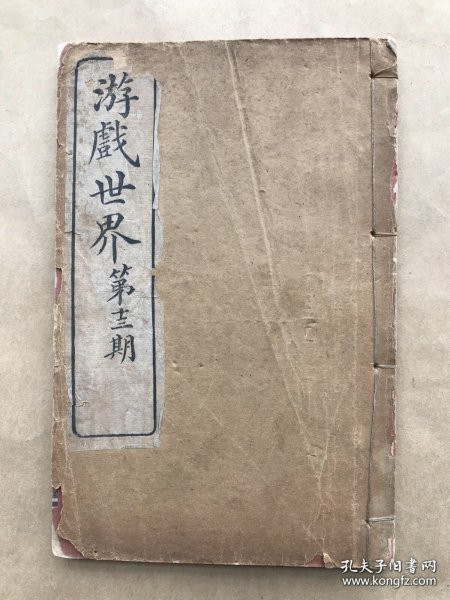 游戲世界第十三期
孔夫子旧书网
www.kongfz.com